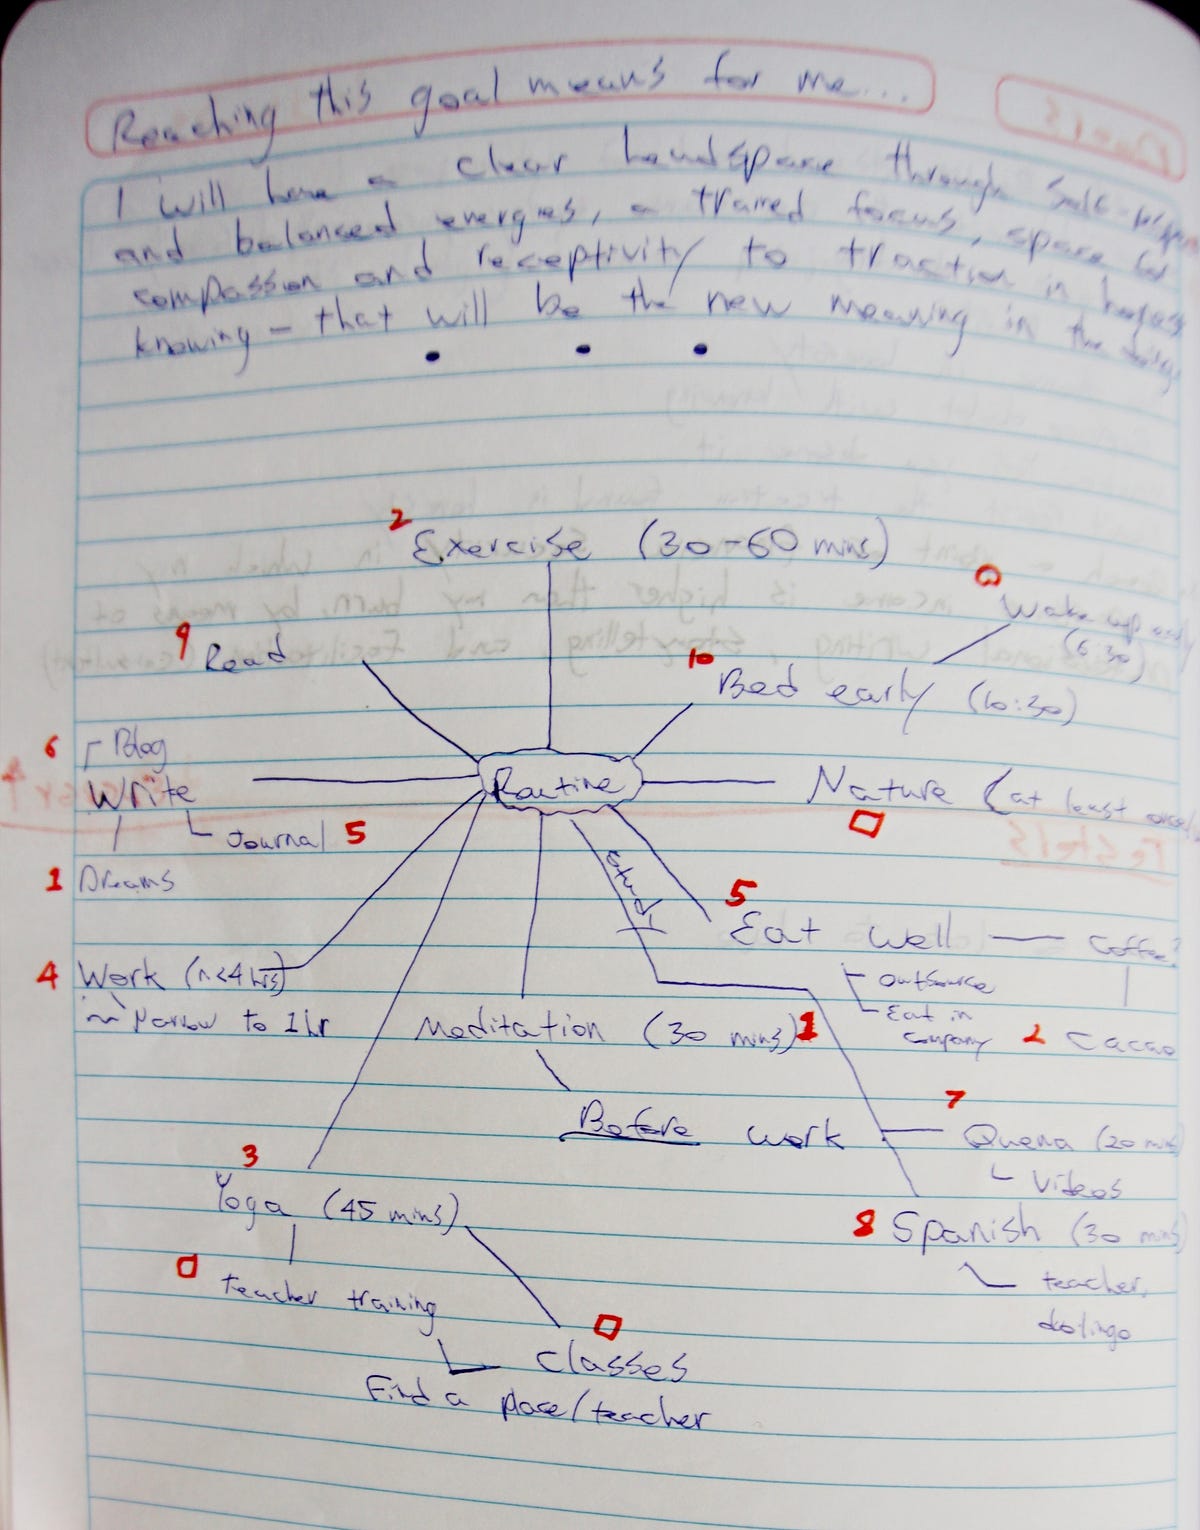 Reaching this goal means for me...
I will have a clear headspace through self-
and balanced energies, a trained focus, space for
compassion and receptivity to traction in
knowing - that will be the new meaning in the
2
Exercise (30-60 mins)
9 Read
Wake up early
(6:30)
10 Bed early (10:30)
6 Blog
Write
Routine
Nature (at least once
Journal 5
1 Dreams
study
5 Eat well
Coffee?
outsource
Eat in
company
2 Cacao
4 Work (n<4 hrs)
Narrow to 1 hr
Meditation (30 mins) 1
Before work
7
Quena (20 mins)
Videos
3
Yoga (45 mins)
8 Spanish (30 mins)
teacher,
teacher training
classes
Find a place/teacher